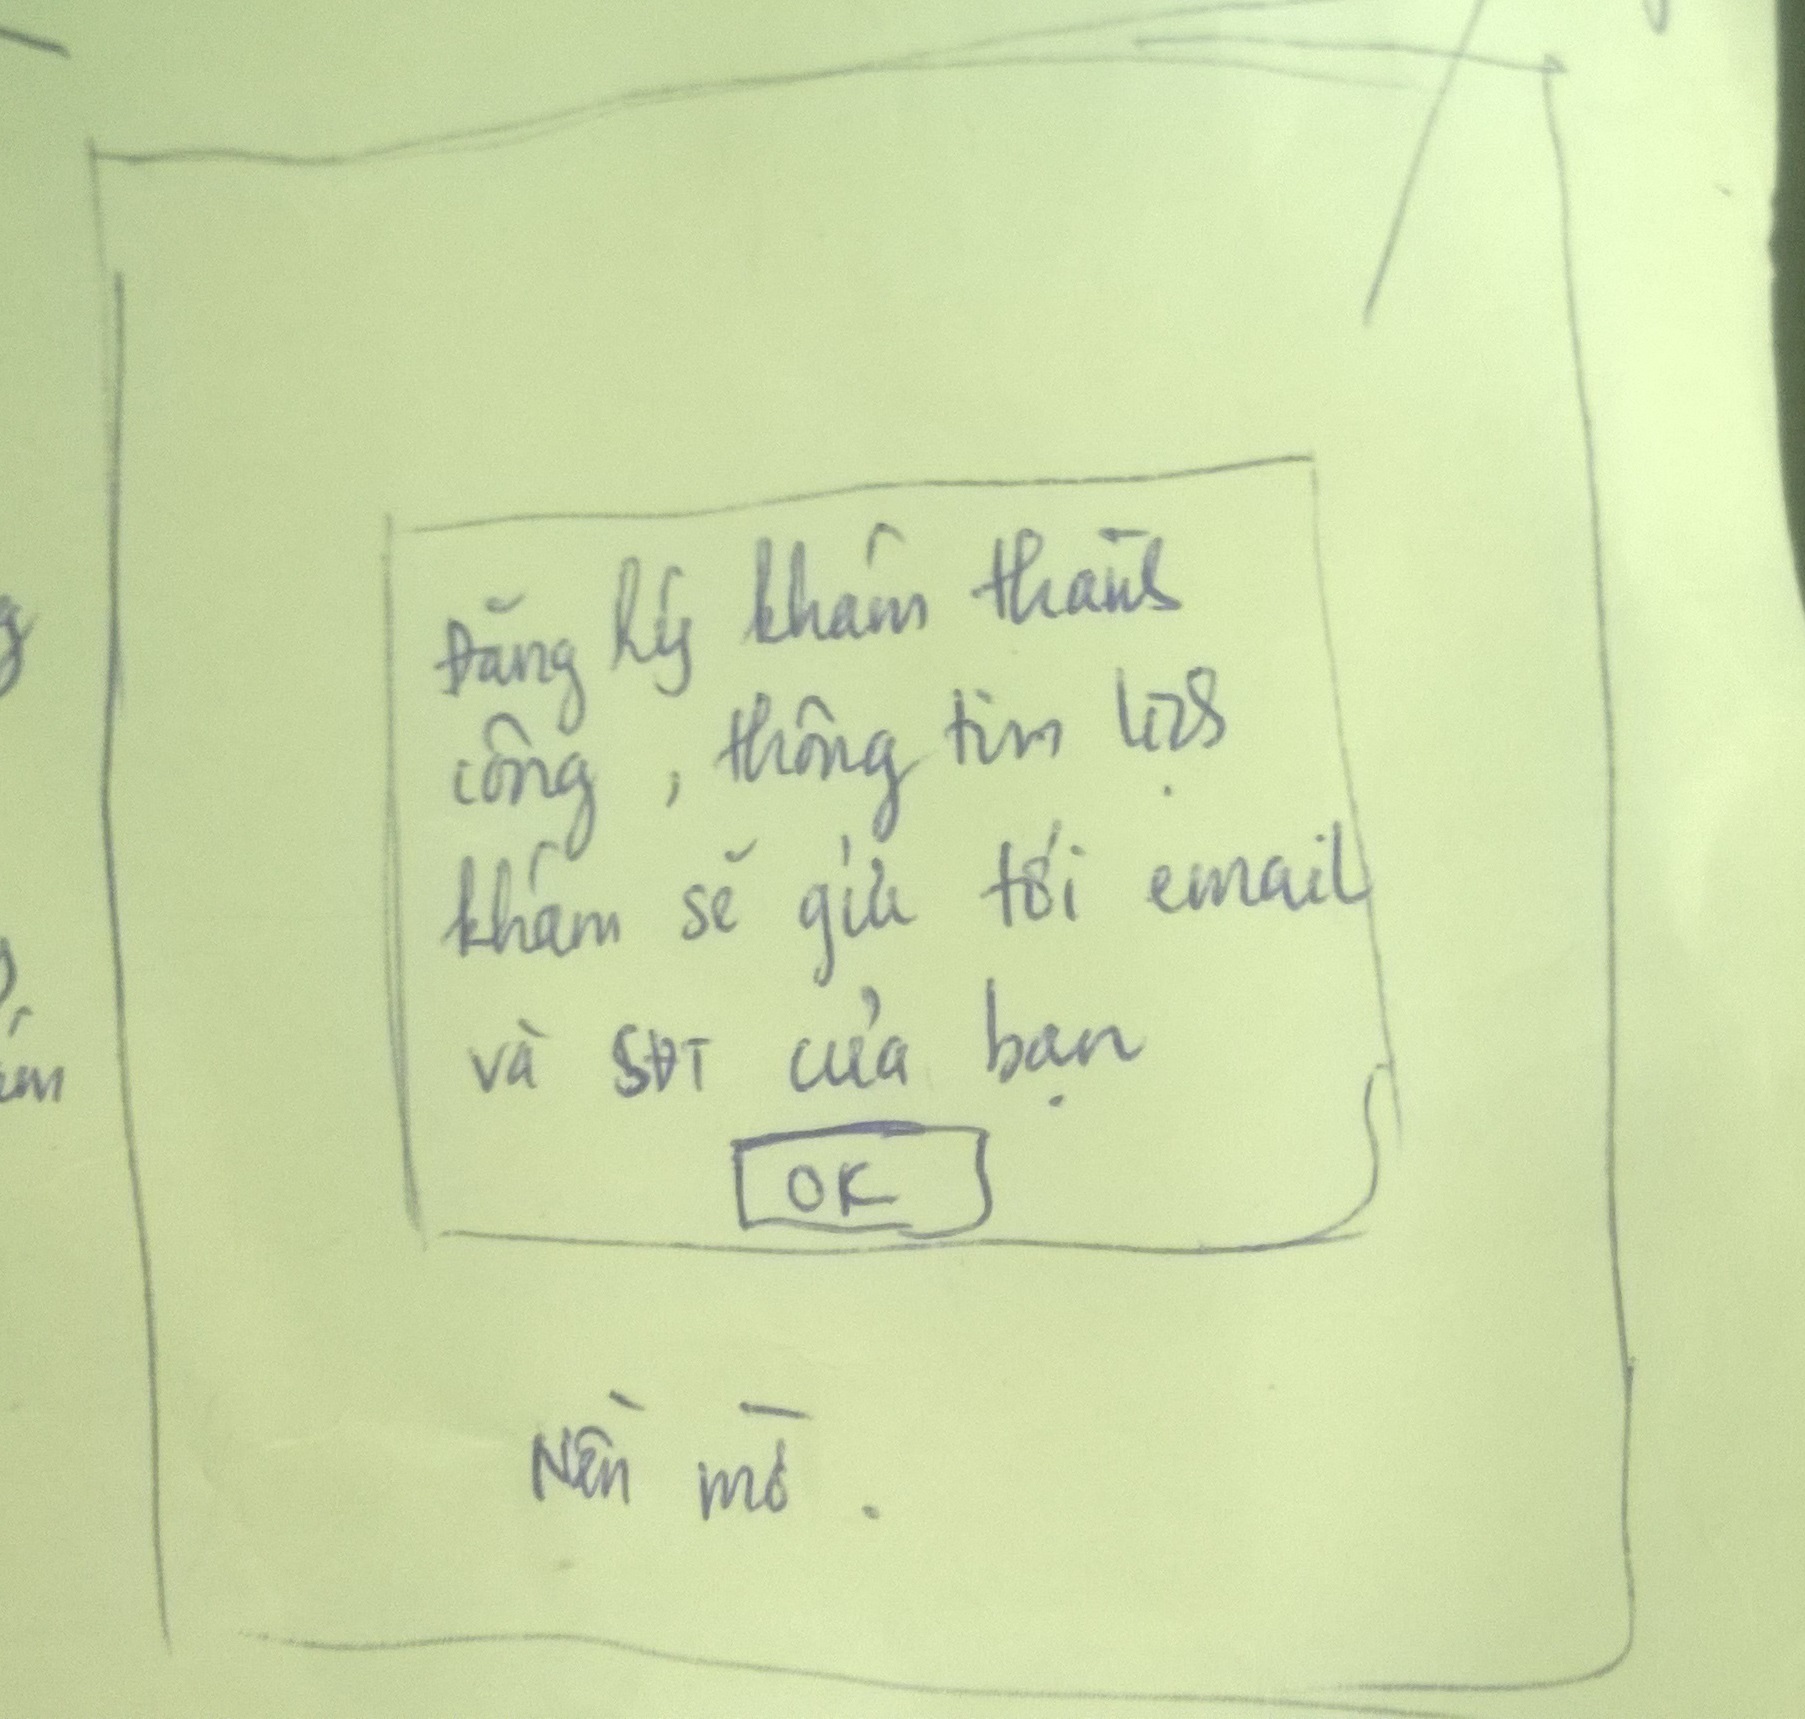 Đăng ký khám thành
công, thông tin lịch
khám sẽ gửi tới email
và SĐT của bạn
OK
Nền mờ.